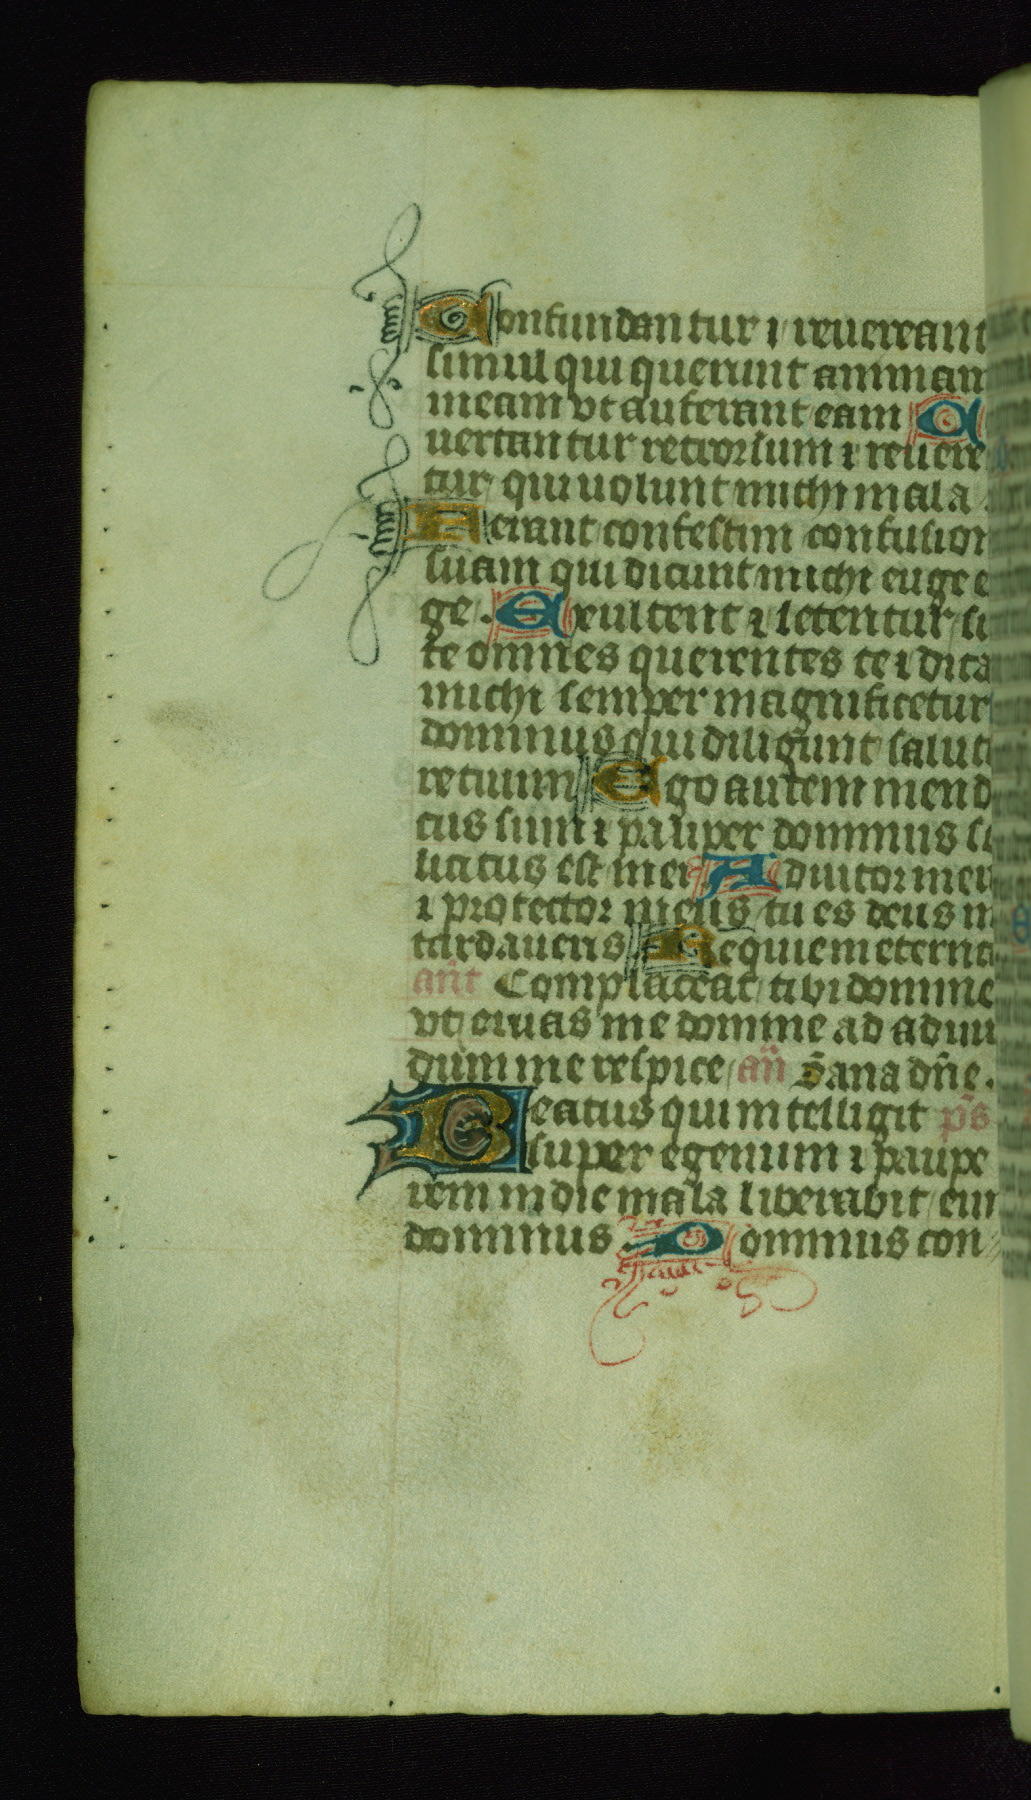 Confundantur ⁊ reuereant
simul qui querunt animam
meam vt auferant eam C
uertantur retrorsum ⁊ reuere
tur qui uolunt michi mala .
Ferant confestim confusion
suam qui dicunt michi euge e
ge . Exultent ⁊ letentur su
te omnes querentes te ⁊ dica
michi semper magnificetur
dominus qui diligunt salut
re tuum Ego autem mend
cus sum ⁊ pauper dominus so
licitus est mei Adiutor meu
⁊ protector meus tu es deus m
tardaueris Requiem eterna
añt Complaceat tibi domine
vt eruas me domine ad adiuu
dum me respice an̄ Sana dn̄e .
Beatus qui intelligit ps̄
super egenum ⁊ paupe
rem in die mala liberabit eum
dominus . Dominus con